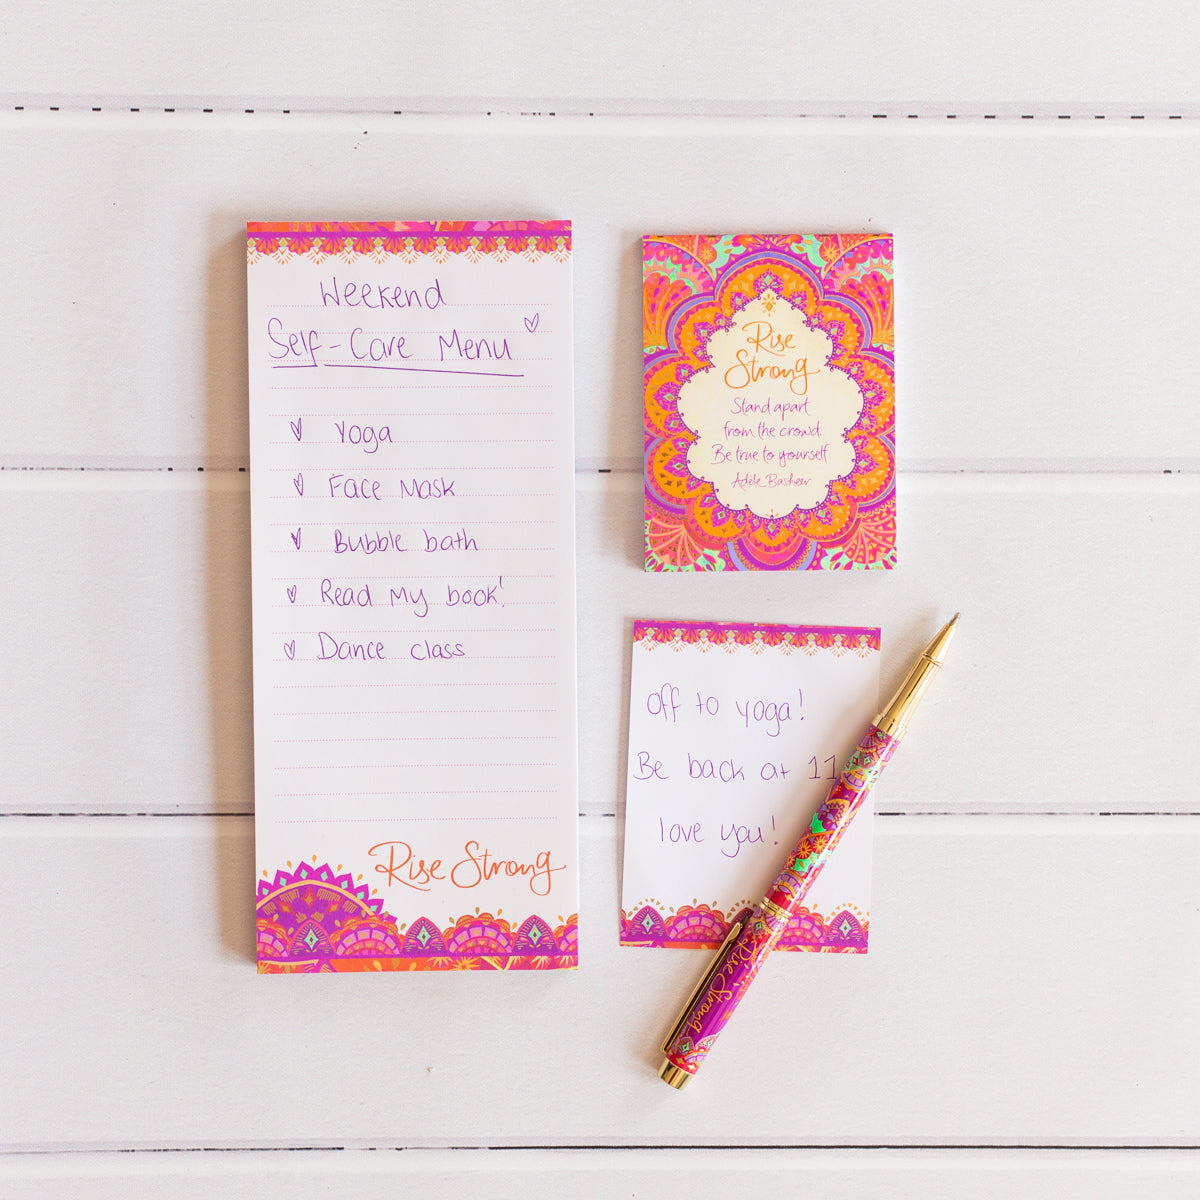 Weekend
Self-Care Menu
Yoga
Face Mask
Bubble bath
Read my book!
Dance class
Rise Strong
Rise
Strong
Stand apart
from the crowd.
Be true to yourself
Adèle Basheer
off to yoga!
Be back at 11
love you!
Rise Strong